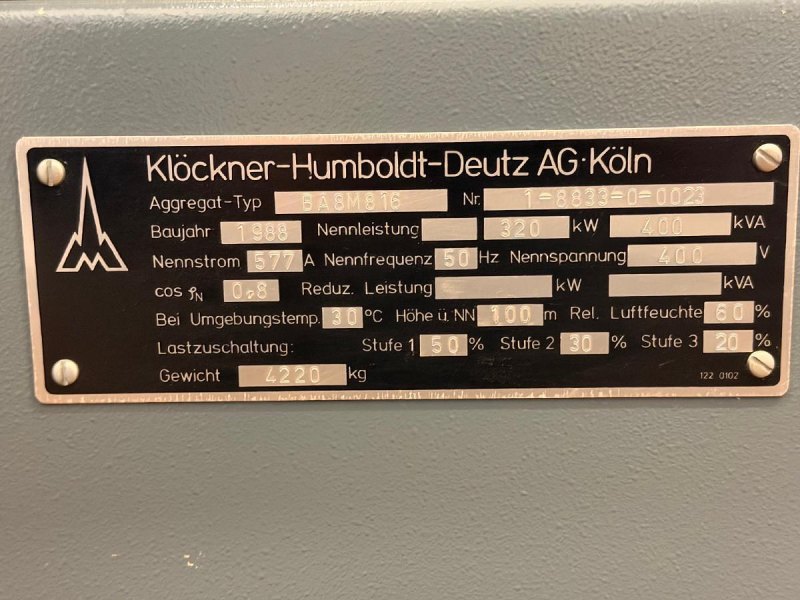 Klöckner-Humboldt-Deutz AG·Köln
Aggregat-Typ BA8M816 Nr. 1-8833-0-0023
Baujahr 1988 Nennleistung 320 kW 400 kVA
Nennstrom 577 A Nennfrequenz 50 Hz Nennspannung 400 V
cos φN 0,8 Reduz. Leistung kW kVA
Bei Umgebungstemp. 30 °C Höhe ü. NN 100 m Rel. Luftfeuchte 60 %
Lastzuschaltung: Stufe 1 50 % Stufe 2 30 % Stufe 3 20 %
Gewicht 4220 kg
122 0102